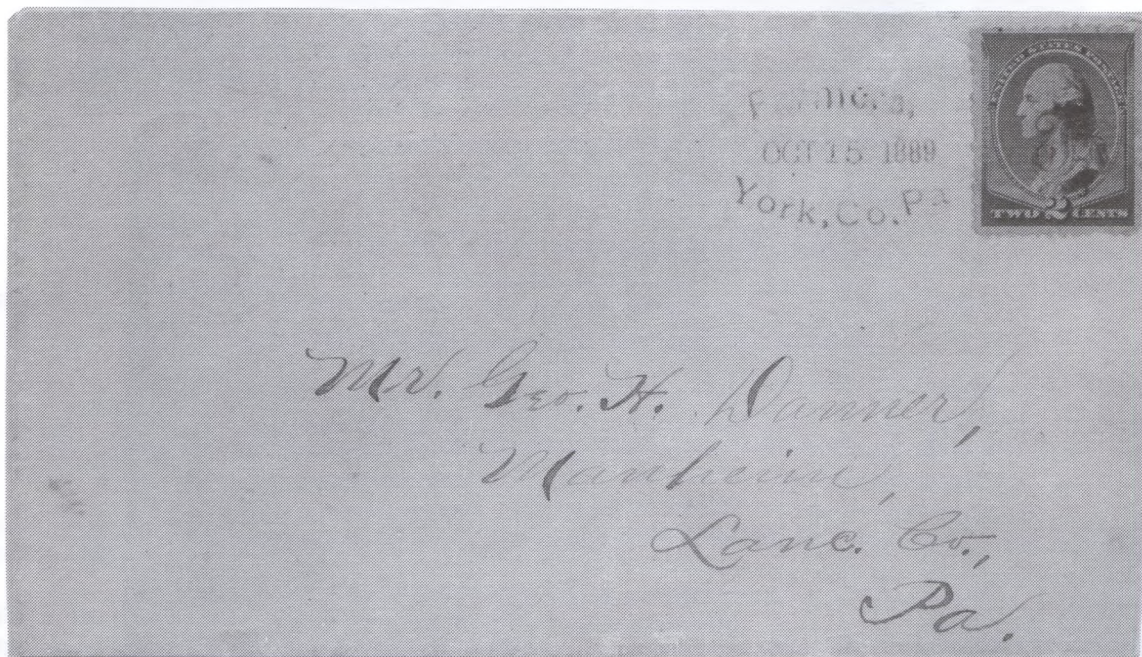 Farmers,
OCT 15 1889
York, Co. Pa
UNITED STATES POSTAGE
TWO 2 CENTS
Mr. Geo. H. Danner,
Manheim,
Lanc. Co.,
Pa.